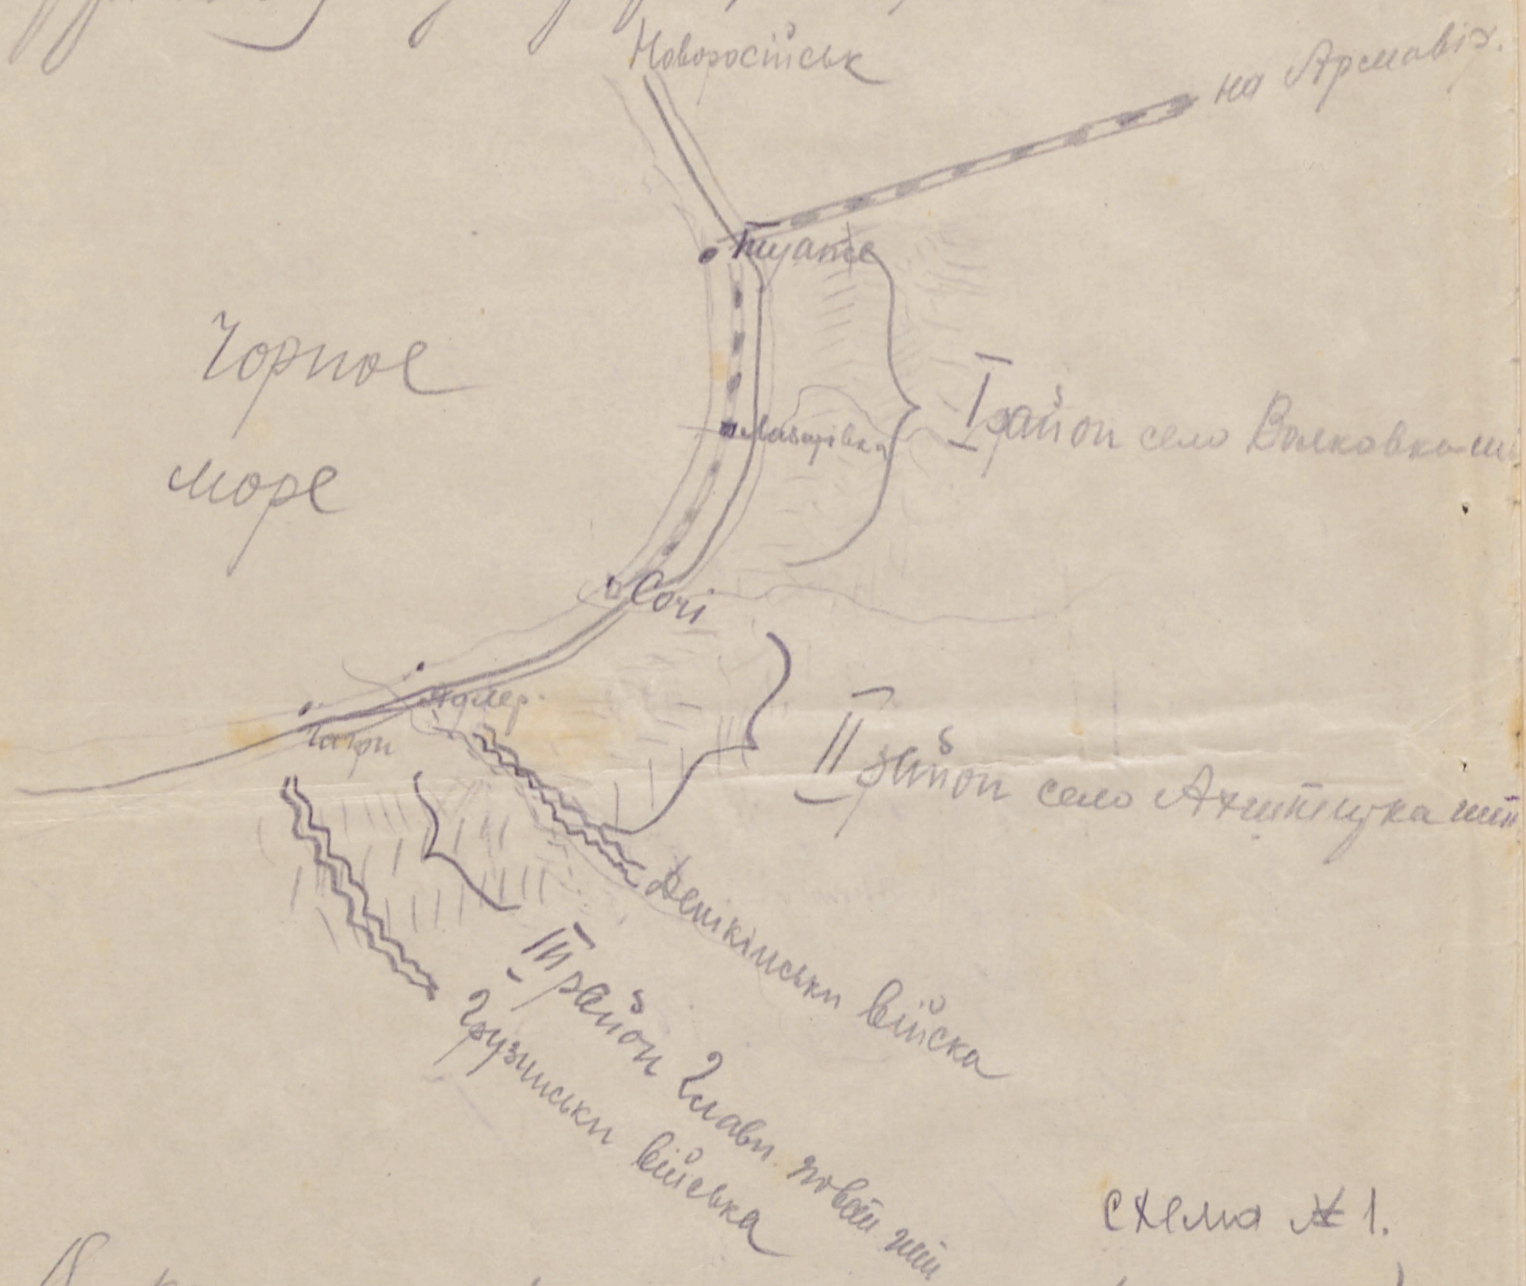 Новоросійськ
на Армавір.
Туапсе
Чорное
море
Лазарівка
I район село Волковка
Сочі
Адлер.
Гагри
II район село Ахштирка штаб
Денікінськи війска
III район Главн. повст. штаб
Грузинськи війська
схема № 1.